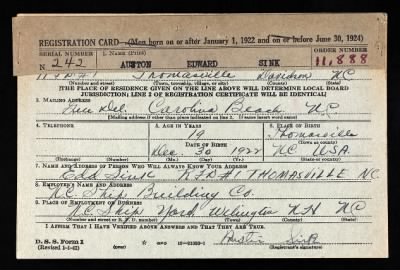 REGISTRATION CARD—(Men born on or after January 1, 1922 and on or before June 30, 1924)
SERIAL NUMBER 1. NAME (Print) ORDER NUMBER
N 242 AUSTON EDWARD SINK 11,888
R.F.D. #1 Thomasville Davidson N.C.
(Town, township, village, or city) (County) (State)
[THE PLACE OF RESIDENCE GIVEN ON THE LINE ABOVE WILL DETERMINE LOCAL BOARD
JURISDICTION; LINE 2 OF REGISTRATION CERTIFICATE WILL BE IDENTICAL]
3. MAILING ADDRESS
Gen Del. Carolina Beach N.C.
[Mailing address if other than place indicated on line 2. If same insert word same]
4. TELEPHONE 5. AGE IN YEARS 6. PLACE OF BIRTH
19 Thomasville
DATE OF BIRTH (Town or county)
Dec 30 1922 N.C. U.S.A.
(Exchange) (Number) (Mo.) (Day) (Yr.) (State or country)
7. NAME AND ADDRESS OF PERSON WHO WILL ALWAYS KNOW YOUR ADDRESS
Edd Sink R.F.D #1 THOMASVILLE NC.
8. EMPLOYER'S NAME AND ADDRESS
N.C. Ship Building Co.
9. PLACE OF EMPLOYMENT OR BUSINESS
N.C. Ship Yard Wilmington N.H. N.C.
(Number and street or R. F. D. number) (Town) (County) (State)
I AFFIRM THAT I HAVE VERIFIED ABOVE ANSWERS AND THAT THEY ARE TRUE.
D. S. S. Form 1
(Revised 1-1-42) (over) Austin Sink
(Registrant's signature)